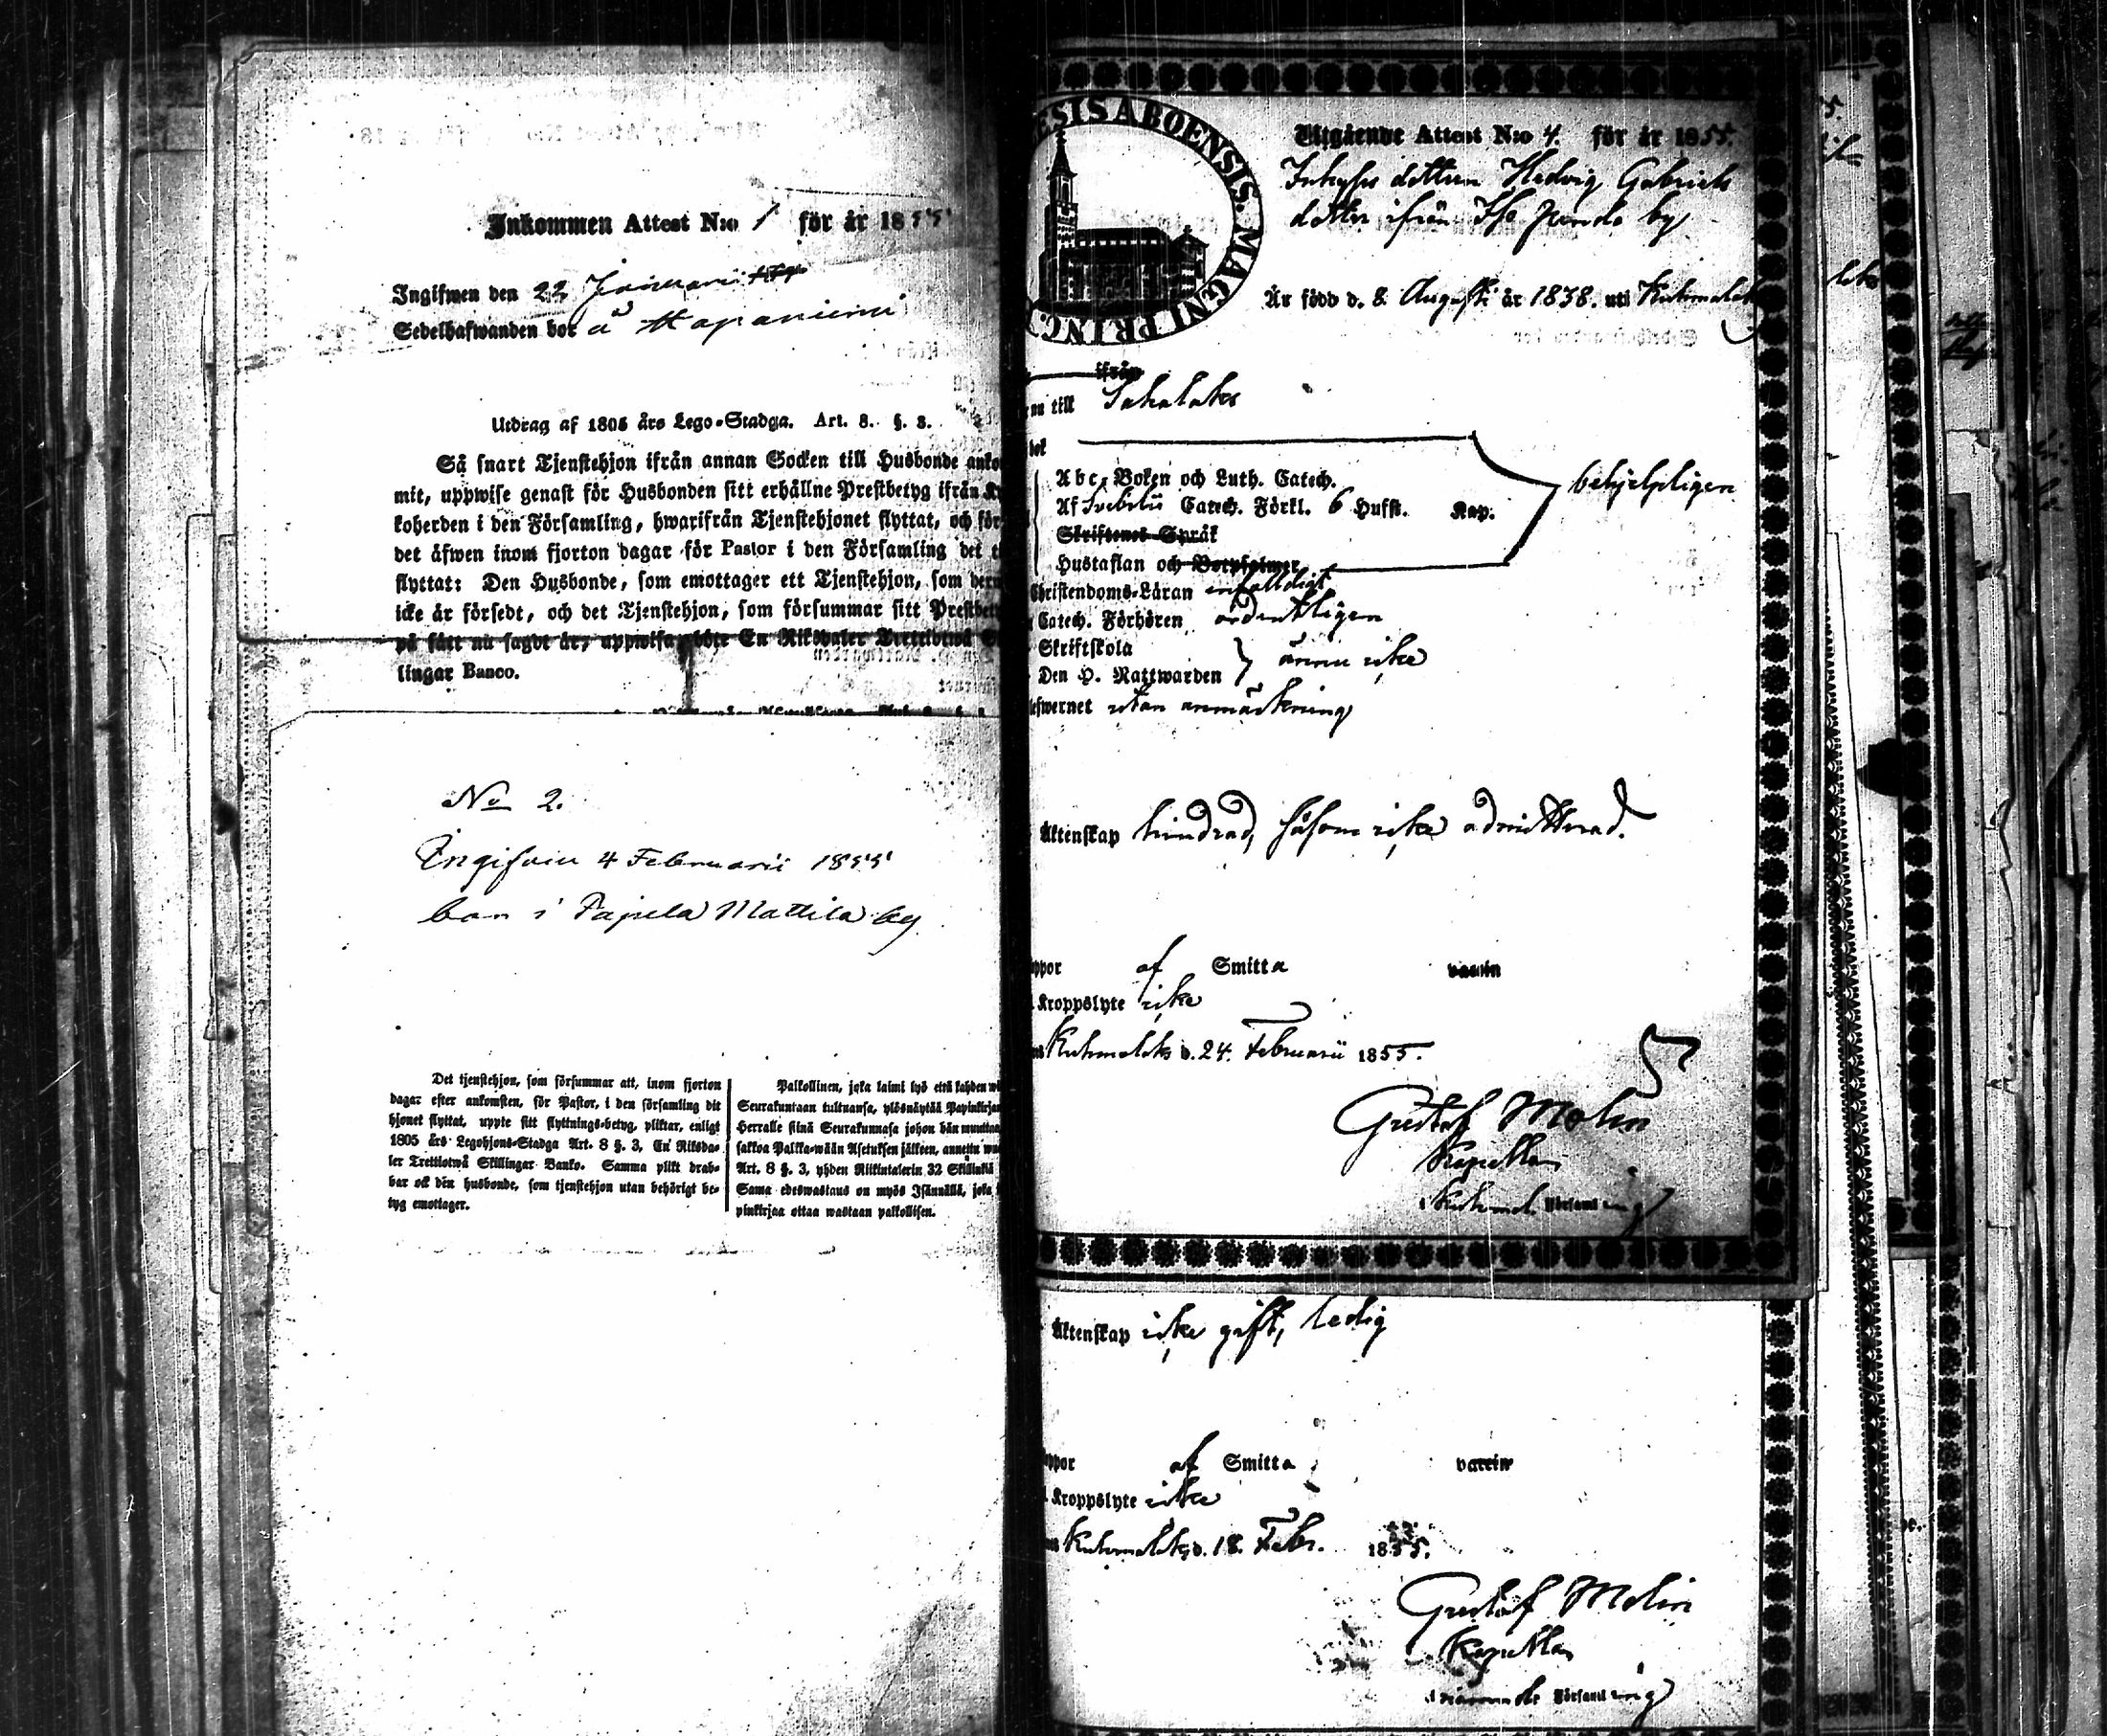 Inkommen Attest N:o 1 för år 1855
Ingifwen den 22 Januarii
Sedelhafwanden bor å Haapaniemi
Utdrag af 1805 års Lego-Stadga. Art. 8. §. 3.
Så snart Tjenstehjon ifrån annan Socken till Husbonde anko
mit, uppwise genast för Husbonden sitt erhållne Prestbetyg ifrån Ky
koherden i den Församling, hwarifrån Tjenstehjonet flyttat, och för
det äfwen inom fjorton dagar för Pastor i den Församling det t
flyttat: Den Husbonde, som emottager ett Tjenstehjon, som derm
icke är försedt, och det Tjenstehjon, som försummar sitt Prestbet
på sätt nu sagdt är, uppwisa, böte En Riksdaler Trettiotwå S
lingar Banco.
No 2.
Ingifven 4 Februarii 1855
bor i Pajula Mattila by
Det tjenstehjon, som försummar att, inom fjorton
dagar efter ankomsten, för Pastor, i den församling dit
hjonet flyttat, uppte sitt flyttnings-betyg, pliktar, enligt
1805 års Legohjons-Stadga Art. 8 §. 3, En Riksda-
ler Trettiotwå Skillingar Banko. Samma plikt drab-
bar ock den husbonde, som tjenstehjon utan behörigt be-
tyg emottager.
Palkollinen, joka laimi lyö että kahden wi
Seurakuntaan tultuansa, ylösnäytää Papinkirjan
Herralle siinä Seurakunnasa johon hän muuttaa
sakkoa Palkka-wään Asetuksen jälkeen, annettu wu
Art. 8 §. 3, yhden Riikintalerin 32 Skillinkiä
Sama edeswastaus on myös Isännällä, joka
pinkirjaa ottaa wastaan palkollisen.
ESIS ABOENSIS. MAGNI PRINC.
Utgående Attest N:o 4. för år 1855.
Inhyses dottren Hedvig Gabriels
dotter ifrån by
Är född d. 8. Augusti år 1838. uti Kuhmalaks
ifrån
till Sahalaks
bok
Abc-Boken och Luth. Catech.
Af Svebilii Catech. Förkl. 6 Hufst. Kap.
behjelpligen
Skriftenes Språk
Hustaflan och Botpsalmer
Christendoms-Läran enfaldigt
Catech. Förhören ordentligen
Skriftskola
Den H. Nattwarden } ännu icke
efwernet utan anmärkning
Äktenskap hindrad, såsom icke admitterad.
ppor af Smitta vaccin
Kroppslyte icke
Kuhmalaks d. 24. Februarii 1855.
Gustaf Molin
Kapellan
i Kuhmal. Församling
Äktenskap icke gift, ledig
ppor af Smitta vaccin
Kroppslyte icke
Kuhmalaks d. 18. Febr. 1855.
Gustaf Molin
Kapellan
Församling